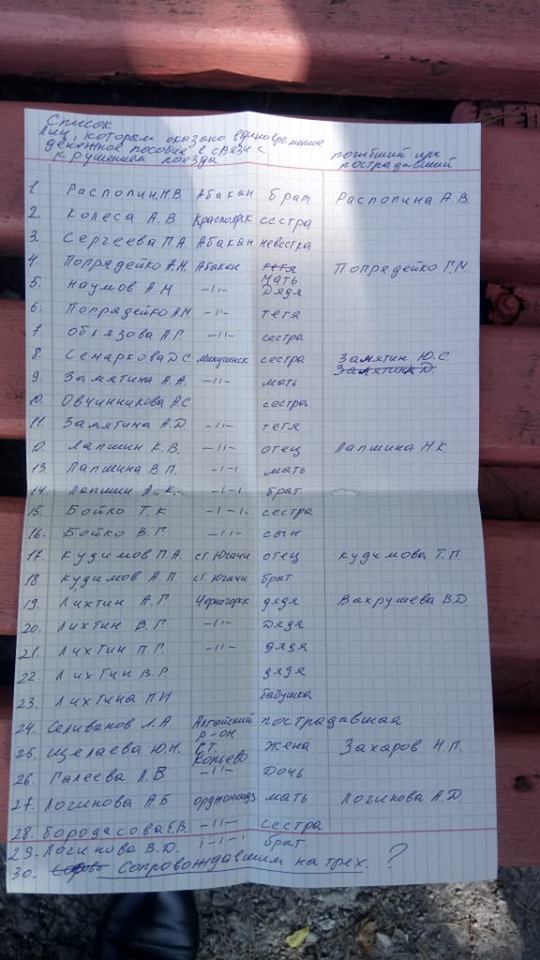 Список
лиц, которым оказано единовременное
денежное пособие в связи с
крушением поезда погибший или пострадавший
1 Распопин Н.В Абакан брат Распопина А.В.
2 Колеса А.В. Красноярск сестра
3. Сергеева П.А. Абакан невестка
4. Попрядейко А.Н. Абакан тетя мать Попрядейко Г.М.
5. Наумов А М -11- Дядя
6. Попрядейко А М -11- тетя
7. Облязова А.Г. -11- сестра
8. Семаркова Д.С. Минусинск сестра Замятин Ю.С Замятина Д
9. Замятина А.А. -11- мать
10. Овчинникова А.С сестра
11. Замятина А.Д -11- тетя
12. Лапшин К.В. -11- отец Лапшина Н К
13 Лапшина В.П. -1-1 мать
14. Лапшин А. К. -1-1 брат
15. Бойко Т.К -1-1. сестра
16. Бойко В.Г -11- сын
17. Кудимов П.А. ст. отец Кудимова Т.П
18 Кудимов А П. ст. брат
19. Лихтин А.Г Черногорск дядя Вахрушева В.Д.
20. Лихтин В.Г -11- Дядя
21. Лихтин П.Г. -11- дядя
22. Лихтин В.Г. дядя
23. Лихтина П И бабушка
24. Селиванов Л.А Алтайский р-он пострадавшая
25. Щелаева Ю.Н. Ст. Копьево жена Захаров Н.П.
26. Галеева Л.В -11- Дочь
27. Логинова А Б орджоникидз мать Логинова А.Д.
28. Бородасова Е.В. -11- сестра
29. Логинова В.Д. 1-1-1 брат
30. Сопровождавшим на трех. ?